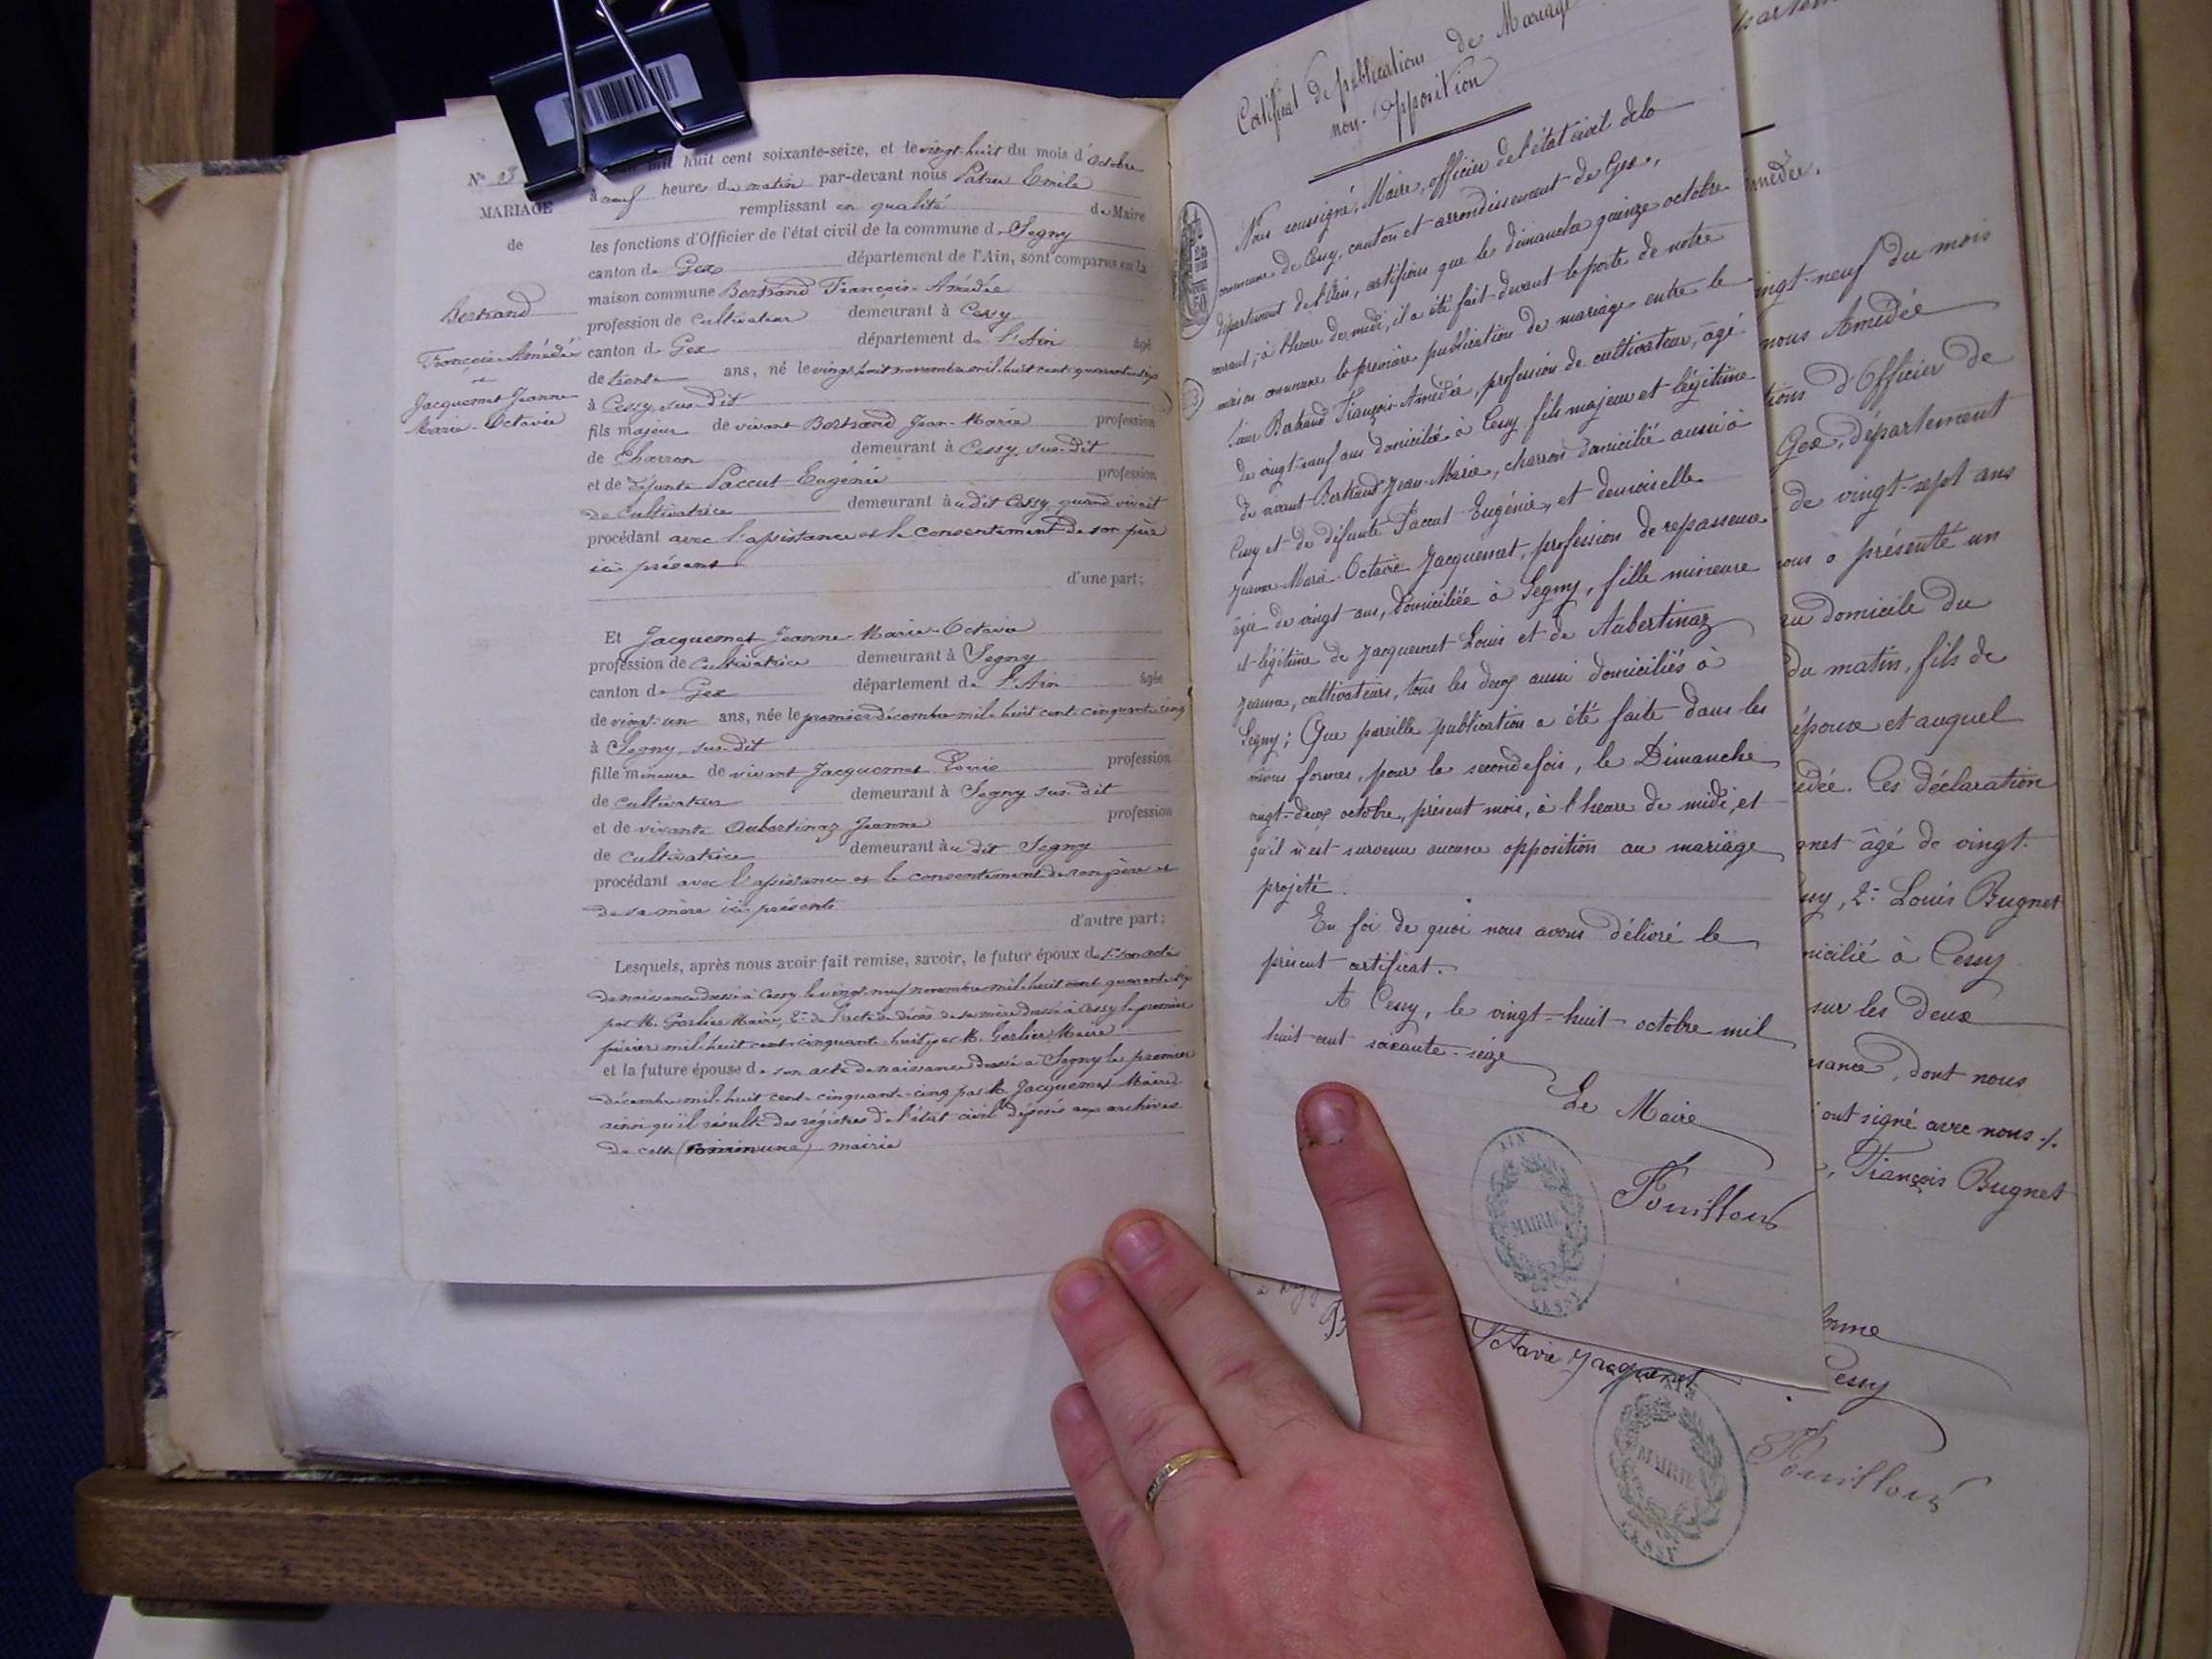 N° 3
MARIAGE
de
Bertrand
François-Amédée
et
Jacquemet Jeanne
Marie-Octavie
mil huit cent soixante-seize, et le vingt-huit du mois d'octobre
à neuf heures du matin par-devant nous Patru Emile
remplissant en qualité de Maire
les fonctions d'Officier de l'état civil de la commune de Segny
canton de Gex département de l'Ain, sont comparus en la
maison commune Bertrand François-Amédée
profession de cultivateur demeurant à Cessy
canton de Gex département de l'Ain âgé
de trente ans, né le vingt huit novembre mil-huit-cent-quarante-six
à Cessy sus-dit
fils majeur de vivant Bertrand Jean-Marie profession
de Charron demeurant à Cessy, sus-dit
et de défunte Paccut Eugénie profession
de cultivatrice demeurant àudit Cessy, quand vivait
procédant avec l'assistance et le consentement de son père
ici présent
d'une part;
Et Jacquemet Jeanne-Marie-Octavie
profession de cultivatrice demeurant à Segny
canton de Gex département de l'Ain âgée
de vingt-un ans, née le premier décembre mil-huit-cent-cinquante-cinq
à Segny, sus-dit
fille mineure de vivant Jacquemet Louis profession
de cultivateur demeurant à Segny sus-dit
et de vivante Aubertinaz Jeanne profession
de cultivatrice demeurant àu dit Segny
procédant avec l'assistance et le consentement de son père et
de sa mère ici présents
d'autre part;
Lesquels, après nous avoir fait remise, savoir, le futur époux de 1° son acte
de naissance dressé à Cessy le vingt-neuf novembre mil-huit cent quarante-six
par M. Gerlier Maire, 2° de l'acte de décès de sa mère dressé à Cessy le premier
février mil-huit cent-cinquante-huit par M. Gerlier, Maire
et la future épouse de son acte de naissance dressé à Segny le premier
décembre mil-huit cent-cinquante-cinq par M. Jacquemet Maire
ainsi qu'il résulte des régistres de l'état civil déposés aux archives
de cette (commune) mairie
Certificat de publications de Mariage
non-opposition
Nous soussigné, Maire, officier de l'état civil de la
commune de Cessy, canton et arrondissement de Gex,
département de l'Ain, certifions que le dimanche quinze octobre
courant, à l'heure de midi, il a été fait devant la porte de notre
maison commune la première publication de mariage entre le
sieur Bertrand François-Amédée, profession de cultivateur, âgé
de vingt-neuf ans domicilié à Cessy, fils majeur et légitime
de vivant Bertrand Jean-Marie, charron domicilié aussi à
Cessy et de défunte Paccut Eugénie, et demoiselle
Jeanne Marie-Octavie Jacquemet, profession de repasseuse
âgée de vingt ans, domiciliée à Segny, fille mineure
et légitime de Jacquemet Louis et de Aubertinaz
Jeanne, cultivateurs, tous les deux aussi domiciliés à
Segny; Que pareille publication a été faite dans les
mêmes formes, pour la seconde fois, le Dimanche
vingt-deux octobre, présent mois, à l'heure de midi, et
qu'il n'est survenu aucune opposition au mariage
projeté.
En foi de quoi nous avons délivré le
présent certificat.
A Cessy, le vingt-huit octobre mil
huit cent soixante-seize
Le Maire
Fouilloux
AIN
MAIRIE
CESSY
Amédée.
vingt-neuf du mois
nous Amédée
tions d'Officier de
Gex, département
de vingt-sept ans
nous a présenté un
au domicile du
du matin, fils de
épouse et auquel
édée. Ces déclaration
gnet âgé de vingt-
ssy, 2° Louis Bugnet
micilié à Cessy
sur les deux
ssance, dont nous
ont signé avec nous ./.
François Bugnet
Octavie Jacquemet
Cessy
MAIRIE
CESSY
Fouilloux